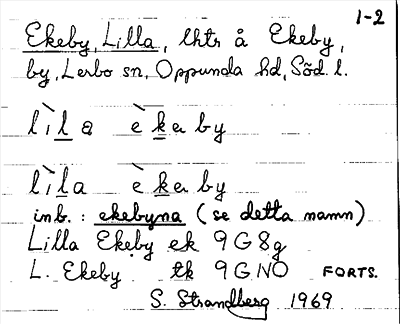 1-2
Ekeby, Lilla, lhtr å Ekeby,
by, Lerbo sn, Oppunda hd, Söd. l.
lìla èkeby
lìla èkeby
inb. : ekebyna (se detta namn)
Lilla Ekeby ek 9G8g
L. Ekeby tk 9GNO FORTS.
S. Strandberg 1969